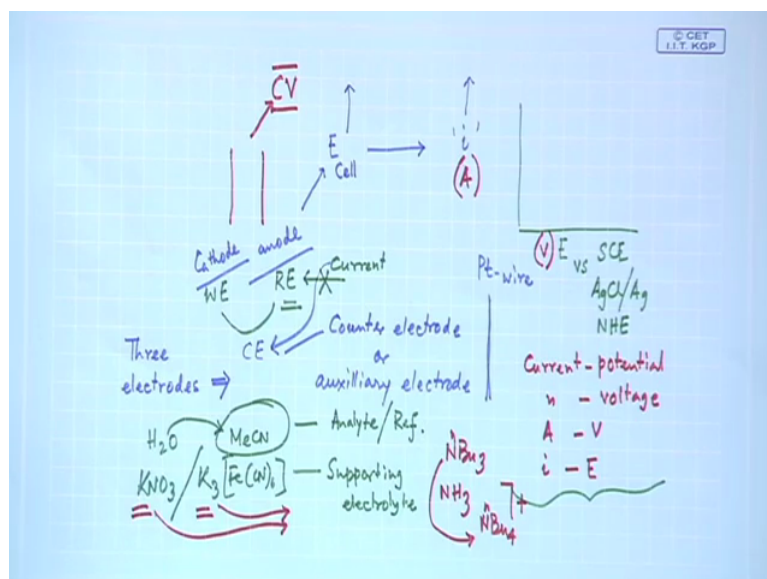 © CET
I.I.T. KGP
CV
E
Cell
"i"
(A)
Cathode anode
WE RE
Current
CE
Counter electrode
or
auxilliary electrode
Three
electrodes ⇒
Pt-wire
(V) E vs SCE
AgCl/Ag
NHE
Current - potential
" - voltage
A - V
i - E
H2O MeCN — Analyte/Ref.
KNO3/K3[Fe(CN)6] — Supporting
electrolyte
NBu3
NH3
NBu4 ]+